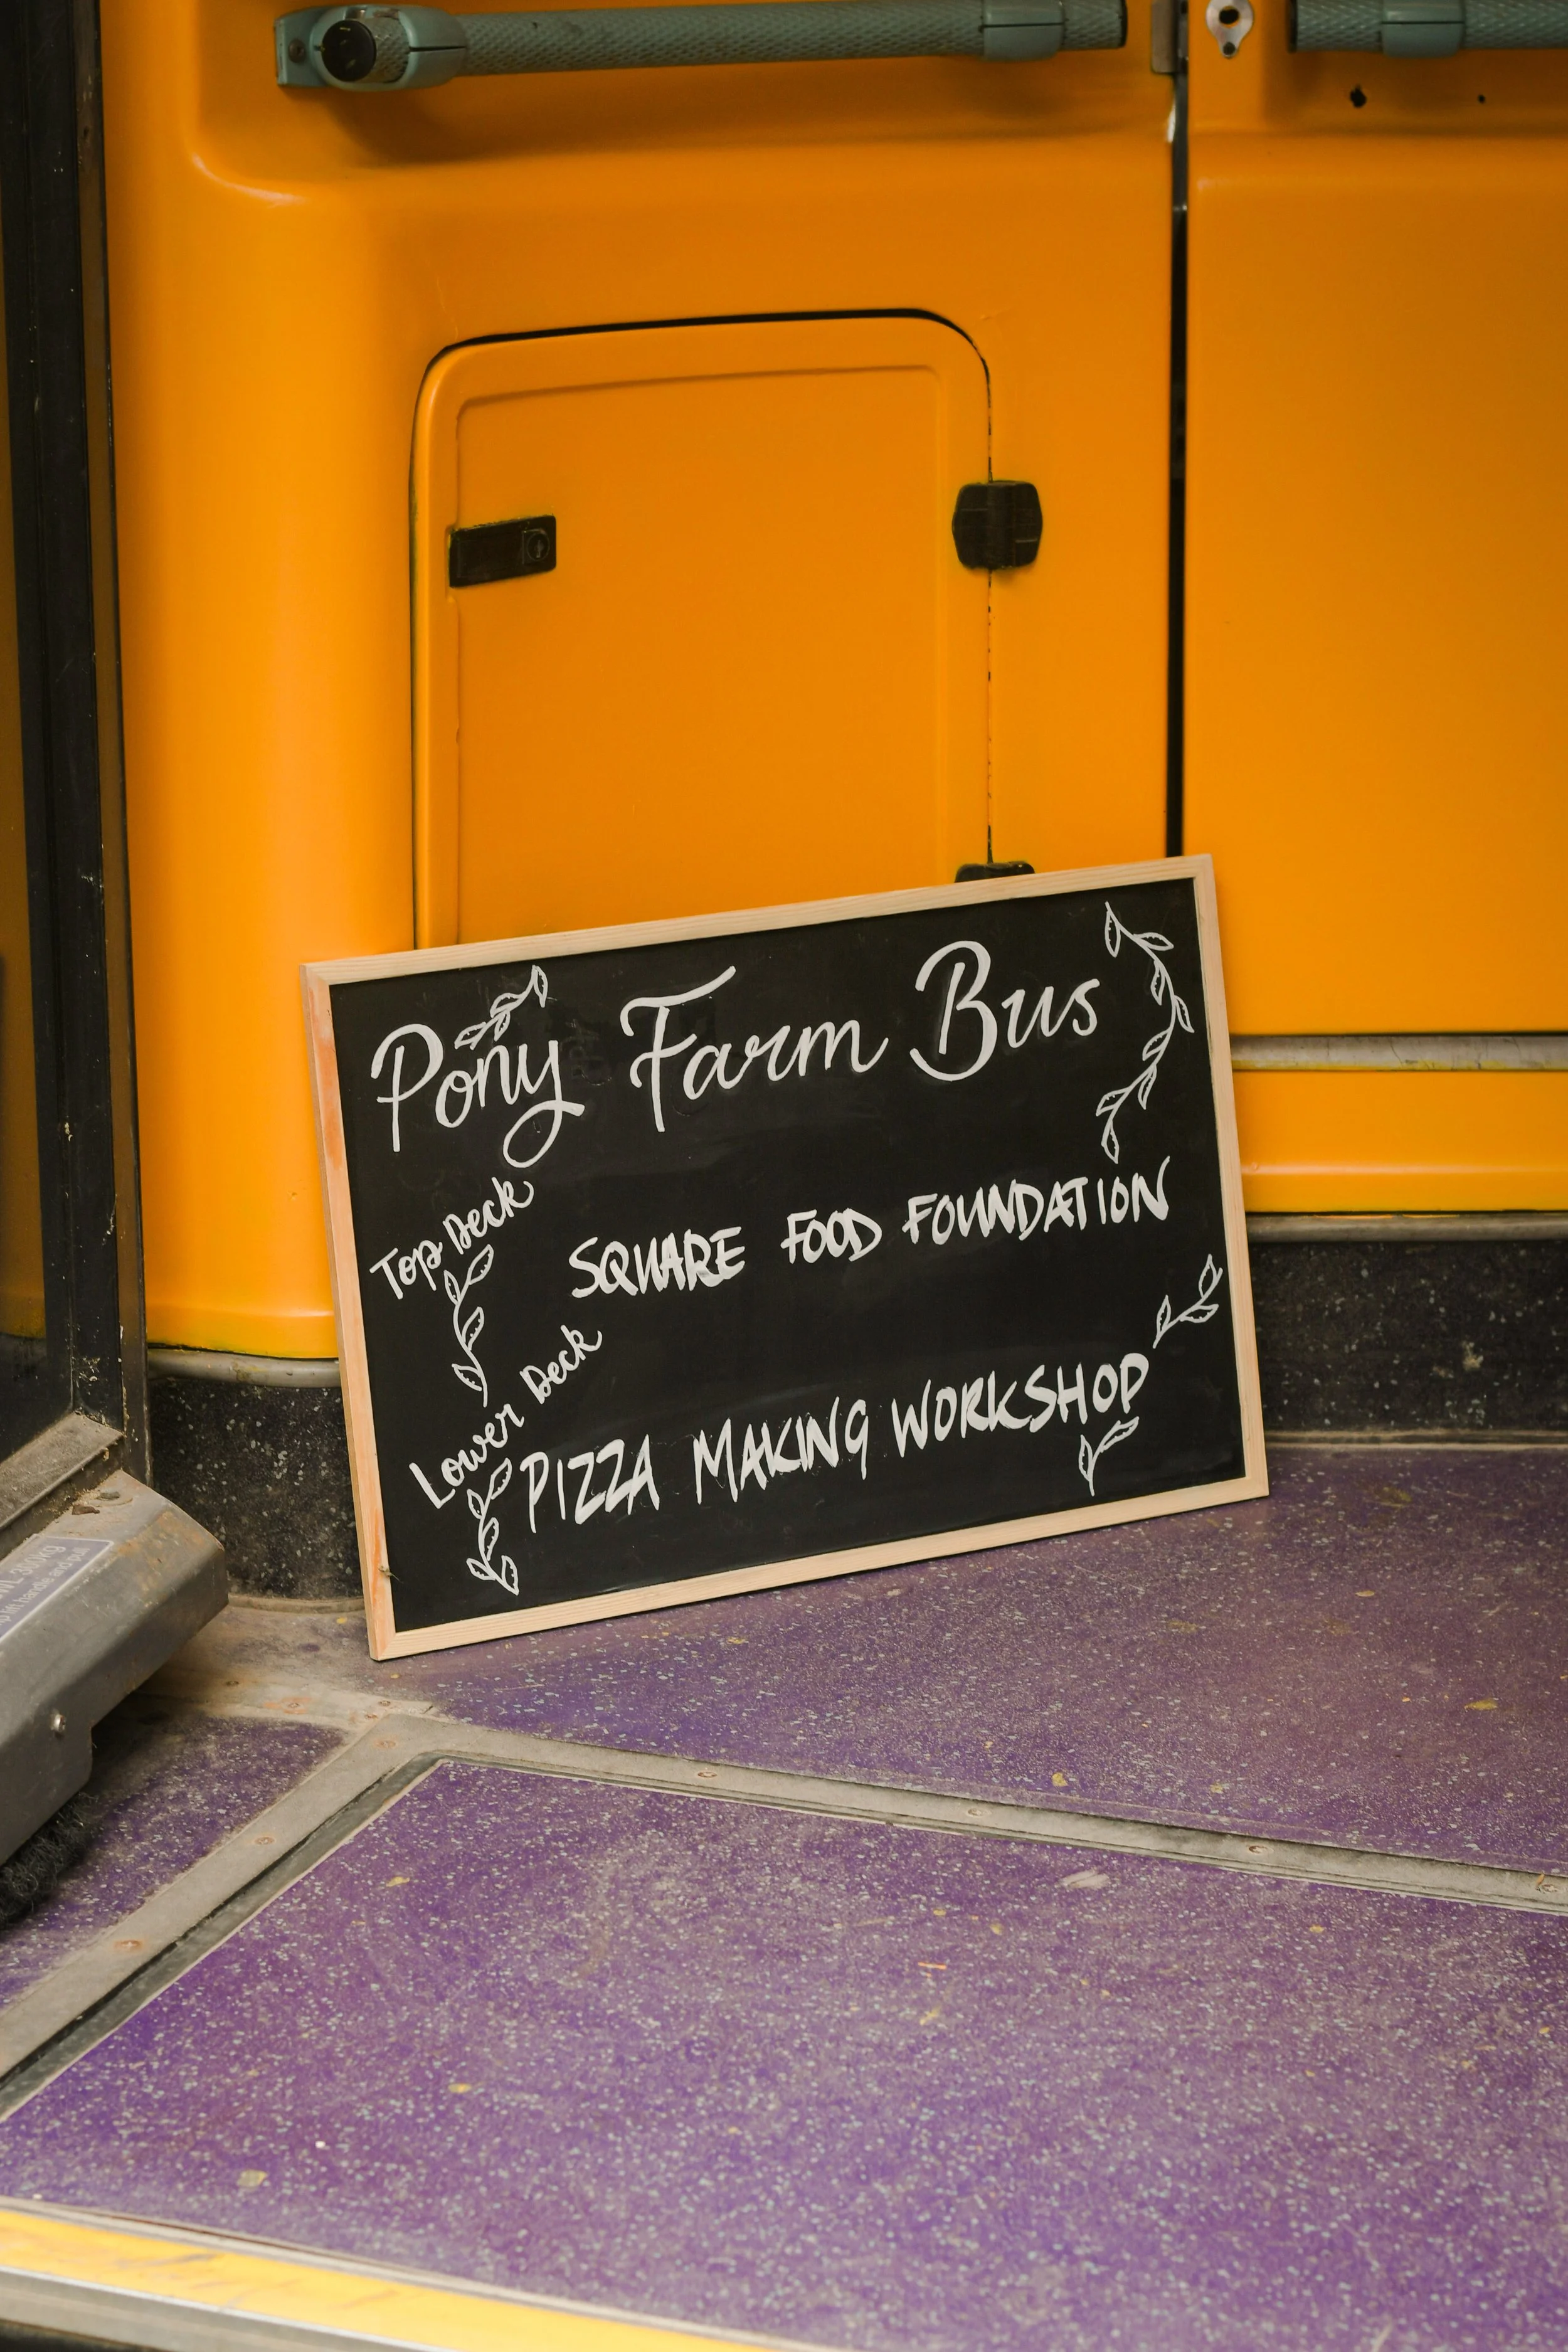 Pony Farm Bus
Top Deck
SQUARE FOOD FOUNDATION
Lower Deck
PIZZA MAKING WORKSHOP